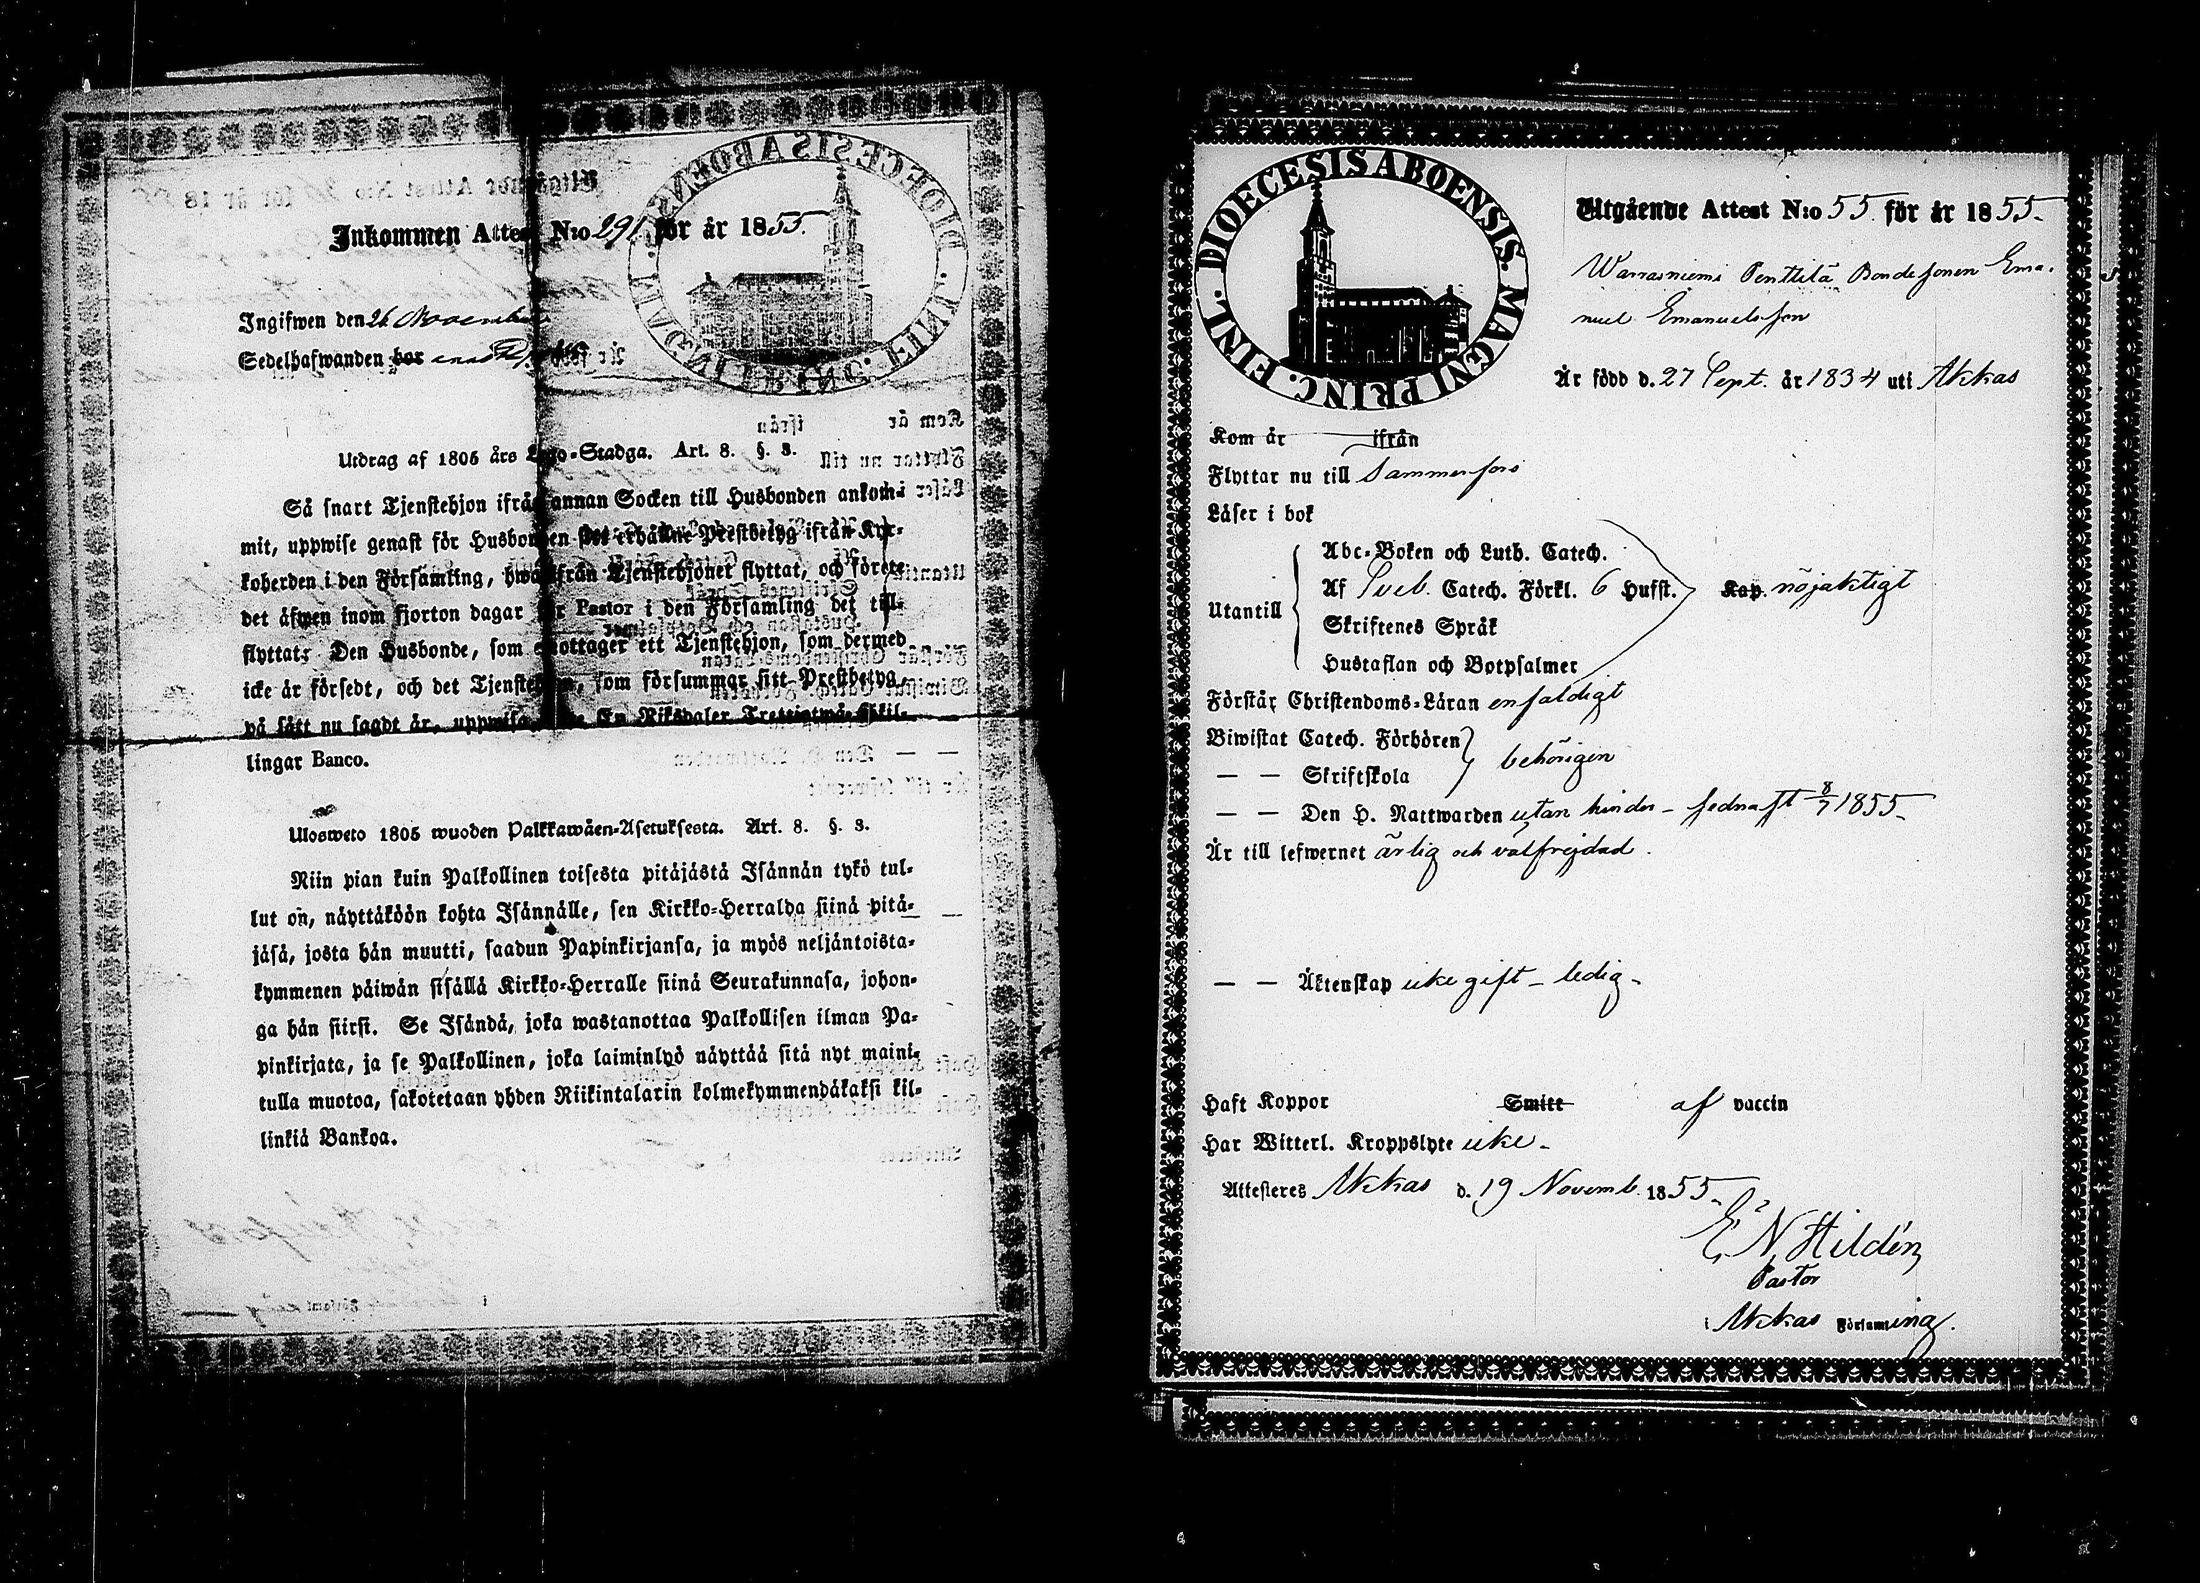 Inkommen Attest N:o 291 för år 1855.
Ingifwen den 26 November
Sedelhafwanden bor
Utdrag af 1805 års Lego-Stadga. Art. 8. §. 3.
Så snart Tjenstehjon ifrån annan Socken till Husbonden ankom-
mit, uppwise genast för Husbonden sitt erhållne Prestbetyg ifrån Kyr-
koherden i den Församling, hwarifrån Tjenstehjonet flyttat, och förete
det äfwen inom fjorton dagar för Pastor i den Församling det till-
flyttat. Den Husbonde, som emottager ett Tjenstehjon, som dermed
icke är försedt, och det Tjenstehjon, som försummar sitt Prestbetyg,
på sätt nu sagdt är, uppwisa, En Riksdaler Trettiotwå Skil-
lingar Banco.
Ulosweto 1805 wuoden Palkkawäen-Asetuksesta. Art. 8. §. 3.
Niin pian kuin Palkollinen toisesta pitäjästä Isännän tykö tul-
lut on, näyttäköön kohta Isännälle, sen Kirkko-Herralda siinä pitä-
jäsä, josta hän muutti, saadun Papinkirjansa, ja myös neljäntoista-
kymmenen päiwän sisällä Kirkko-Herralle siinä Seurakunnasa, johon-
ga hän siirsi. Se Isändä, joka wastanottaa Palkollisen ilman Pa-
pinkirjata, ja se Palkollinen, joka laiminlyö näyttää sitä nyt maini-
tulla muotoa, sakotetaan yhden Riikintalarin kolmekymmendäkaksi kil-
linkiä Bankoa.
DIOECESIS ABOENSIS. MAGNI PRINC. FINL.
Utgående Attest N:o 55 för år 1855.
Warrasniemi Penttilä Bondesonen Ema-
nuel Emanuelsson
Är född d. 27 Sept. år 1834 uti Akkas
Kom år ifrån
Flyttar nu till Tammerfors
Läser i bok
Utantill
Abc-Boken och Luth. Catech.
Af Sveb. Catech. Förkl. 6 Hufst. Kap. nöjaktigt
Skriftenes Språk
Hustaflan och Botpsalmer
Förstår Christendoms-Läran enfaldigt
Biwistat Catech. Förhören
— — Skriftskola behörigen
— — Den H. Nattwarden utan hinder - sednast 8/7 1855-
Är till lefwernet ärlig och välfrejdad.
— — Äktenskap icke gift - ledig -
Haft Koppor Smitt af vaccin
Har Witterl. Kroppslyte icke -
Attesteras Akkas d. 19 Novemb. 1855.
E. N. Hildén
Pastor
i Akkas Församling.